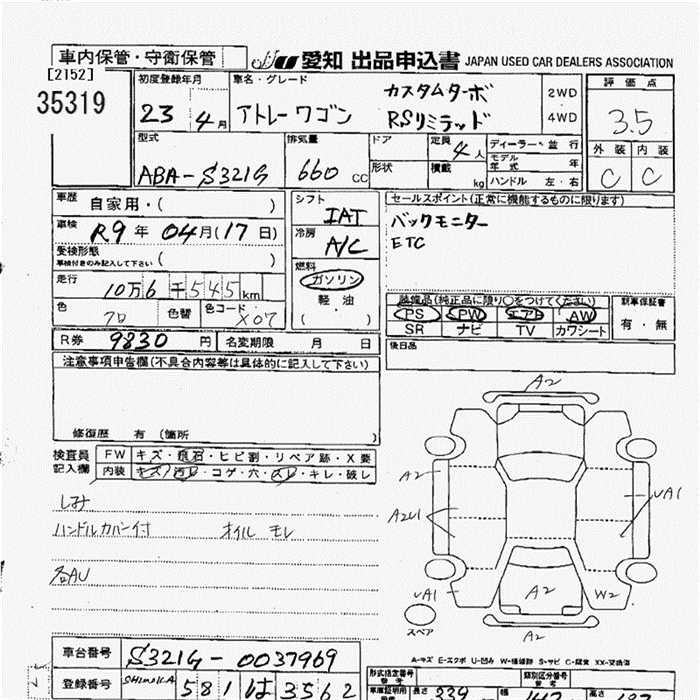 車内保管・守衛保管
JU 愛知 出品申込書 JAPAN USED CAR DEALERS ASSOCIATION
[2152]
35319
初度登録年月
23年4月
車名・グレード
アトレーワゴン
カスタムターボ
RSリミテッド
2WD
4WD
評価点
3.5
外装 内装
C C
型式
ABA-S321G
排気量
660 CC
ドア
形状
定員
4人
積載
kg
ディーラー・並行
モデル年式 年
ハンドル 左・右
車歴
自家用・( )
車検
R9年04月(17日)
受検形態
車検付きのみ記入して下さい ( )
走行
10万6千545km
色
クロ
色替
色コード
X07
シフト
IAT
冷房
A/C
燃料
ガソリン
軽・油
( )
セールスポイント(正常に機能するものに限ります)
バックモニター
ETC
装備品(純正品に限り○をつけてください)
PS PW エアB AW
SR ナビ TV カワシート
新車保証書
有・無
R券 9830円
名変期限 月 日
後日品
注意事項申告欄(不具合内容等は具体的に記入して下さい)
修復歴 有 (箇所 )
検査員記入欄
FW キズ・飛石・ヒビ割・リペア跡・X要
内装 キズ・汚レ・コゲ・穴・スレ・キレ・破レ
シミ
ハンドルカバー付 オイルモレ
各AU
A2
A2
A2U1
UA1
UA1
A2
W2
A2
スペア
A-キズ E-エクボ U-凹み W-補修跡 S-サビ C-腐食 XX-交換済
車台番号
S321G-0037969
登録番号
581は3562
形式指定番号
類別区分番号
長さ 339
幅 147
高さ 187